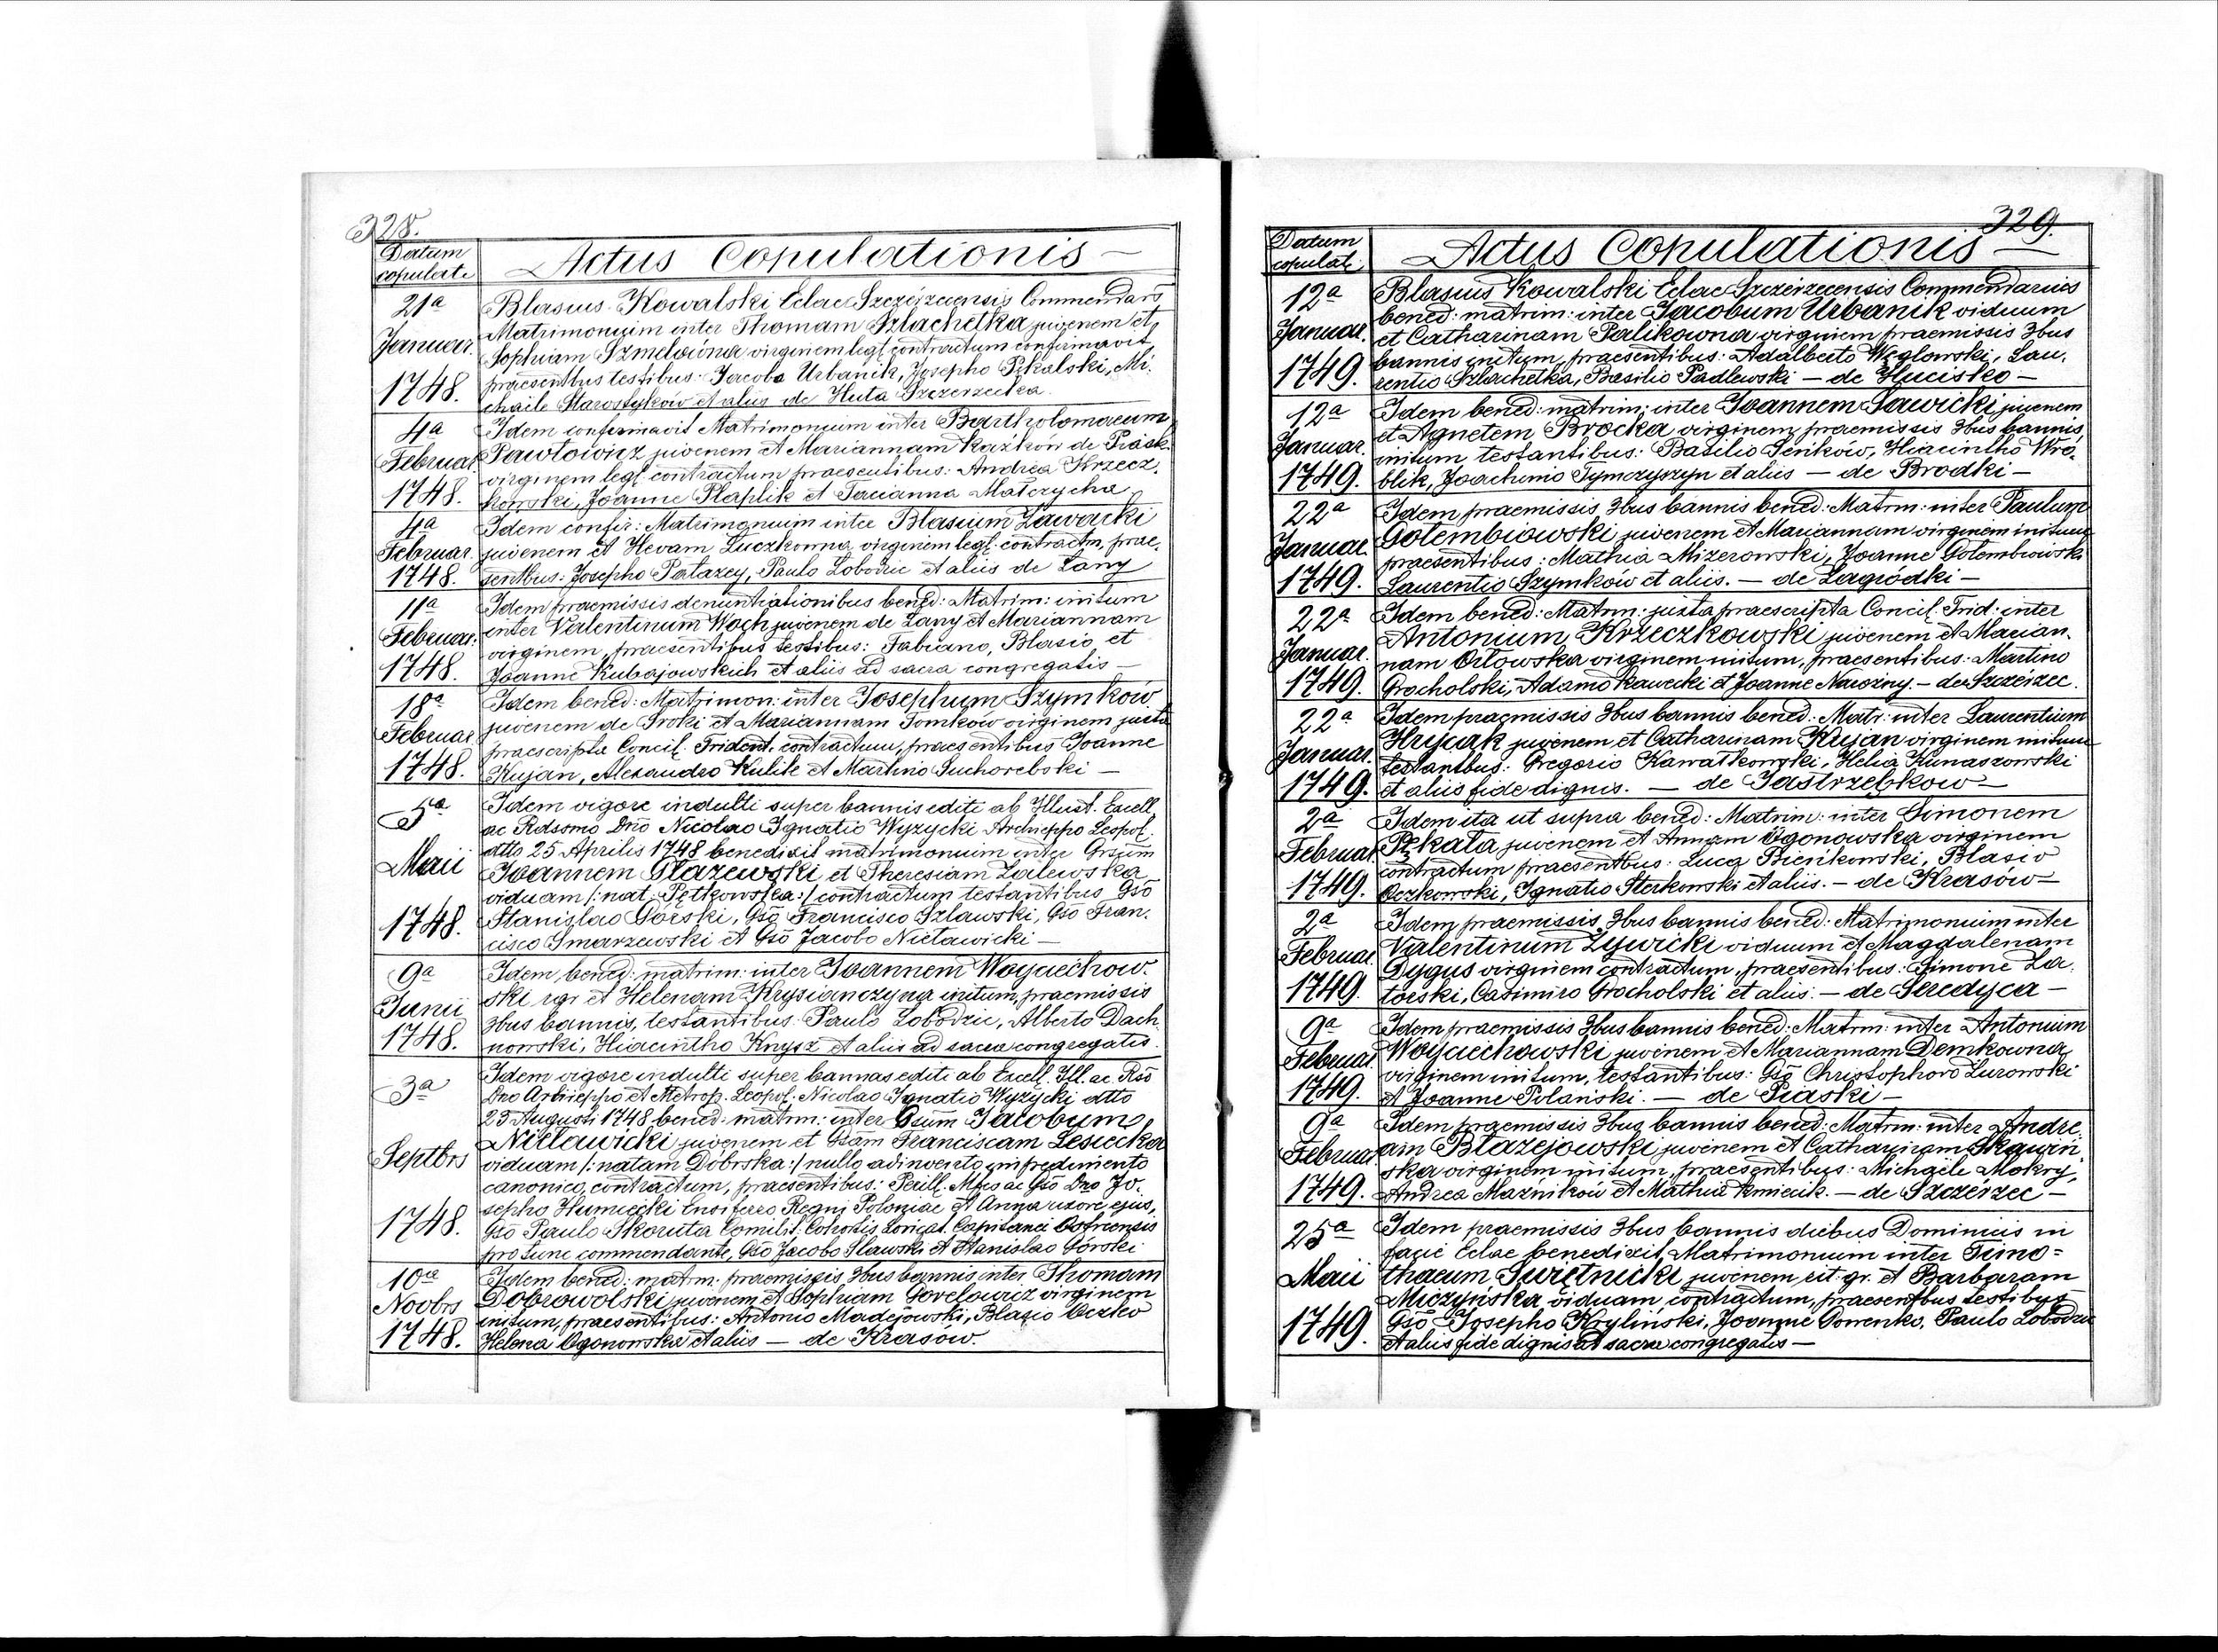 328.
Datum
copulati
Actus Copulationis
21a
Januar.
1748.
Blasius Kowalski Eclae Szczérzecensis Commendars
Matrimonium inter Thomam Szlachetka juvenem et
Sophiam Szmelowna virginem legt contractum confirmavit
praesentbus testibus: Jacobo Urbanik, Josepho Pękalski, Mi-
chaele Starostyków et aliis de Huta Szczerzecka
4a
Februar.
1748.
Idem confirmavit Matrimonium inter Bartholomaeum
Pawłowicz juvenem et Mariannam Każków de Piask
virginem legt contractum praesentibus: Andrea Krzecz-
kowski, Joanne Płaplik et Tacianna Matczycha
4a
Februar.
1748.
Idem confir: Matrimonium inter Blasium Zawacki
juvenem et Hevam Łuczkowna virginem legt. contractm, prae-
sentbus: Josepho Patazey, Paulo Lobodzic et aliis de Łany
11a
Februar.
1748.
Idem praemissis denuntiationibus bened: Matrim: initum
inter Valentinum Woch juvenem de Łany et Mariannam
virginem, praesentibus testibus: Fabiano, Blasio et
Joanne Kubajowskich et aliis ad sacra congregatis —
18a
Februar.
1748.
Idem bened: Matrimon: inter Josephum Szymków
juvenem de Sroki et Mariannam Tomków virginem justa
praescripta Concil. Trident. contractum, praesentibus Joanne
Kujan, Alexandro Kulik et Martino Suchorebski —
5a
Maii
1748.
Idem vigore indulti super bannis editi ab Illust. Excell.
ac Rdssmo Dno Nicolao Ignatio Wyzycki Archieppo Leopol.
dtto 25 Aprilis 1748 benedixit matrimonium inter Grsum
Joannem Głazewski et Theresiam Zalewska
viduam /: nat. Pętkowska :/ contractum testantibus Gso
Stanislao Górski, Gso Francisco Szlawski, Gso Fran-
cisco Smarzewski et Gso Jacobo Nieławicki —
9a
Junii
1748.
Idem bened: matrim: inter Joannem Woyciechow-
ski rgr et Helenam Krysianczyna initum, praemissis
3bus bannis, testantibus: Paulo Lobodzic, Alberto Dach-
nowski, Hiacintho Knysz et aliis ad sacra congregatis.
3a
Septbrs
1748.
Idem vigore indulti super bannas editi ab Excell. Ill. ac Rso
Dno Archieppo et Metrop. Leopol. Nicolao Ignatio Wyżycki dtto
23 Augusti 1748 bened: matrm: inter Gsum Jacobum
Nieławicki juvenem et Gsam Franciscam Lesiecka
viduam /: natam Dóbrska :/ nullo adinvento impedimento
canonico, contractum, praesentibus: Perill. Mfco ac Gso Dno Jo-
sepho Humiecki Ensifero Regni Poloniae et Anna uxore ejus,
Gso Paulo Skoruta Comilit: Cohortis Loricat. Capitanei Ostrcensis
pro tunc commendante, Gso Jacobo Slawski et Stanislao Górski
10a
Novbrs
1748.
Idem bened: matrm. praemissis 3bus bannis inter Thomam
Dobrowolski juvenem et Sophiam Gorelowicz virginem
initum, praesentibus: Antonio Madejowski, Blasio Oczko
Helena Ogonowska et aliis — de Krasów.
329.
Datum
copulati
Actus Copulationis
12a
Januar.
1749.
Blasius Kowalski Eclae Szczérzecensis Commendarius
bened: matrim: inter Jacobum Urbanik viduum
et Catharinam Palikowna virginem praemissis 3bus
bannis initum, praesentibus: Adalberto Węglowski, Lau-
rentio Szlachetka, Basilio Padlewski — de Hucisko —
12a
Januar.
1749.
Idem bened: matrim: inter Joannem Sawicki juvenem
et Agnetem Brocka virginem praemissis 3bus bannis
initum testantibus: Basilio Seńków, Hiacintho Wró-
blik, Joachimo Tymczyszyn et aliis — de Brodki —
22a
Januar.
1749.
Idem praemissis 3bus bannis bened: Matrm: inter Paulum
Gołembiowski juvenem et Mariannam virginem initum
praesentibus: Mathia Mizerowski, Joanne Gołembiowski
Laurentio Szymków et aliis. — de Zagródki —
22a
Januar.
1749.
Idem bened: Matrm: justa praescripta Concil. Trid: inter
Antonium Krzeczkowski juvenem et Marian-
nam Orłowska virginem initum, praesentibus: Martino
Grocholski, Adamo Kawecki et Joanne Narozny. — de Szczérzec.
22a
Januar.
1749.
Idem praemissis 3bus bannis bened: Matr: inter Laurentium
Hrycak juvenem et Catharinam Kujan virginem initum
testantbus: Gregorio Kawałkowski, Helia Kunaszowski
et aliis fide dignis. — de Jastrzębkow —
2a
Februar.
1749.
Idem ita ut supra bened: Matrim: inter Simonem
Pękata juvenem et Annam Ogonowska virginem
contractum praesentbus: Luca Bieńkowski, Blasio
Oczkowski, Ignatio Sterkowski et aliis. — de Krasów —
2a
Februar.
1749.
Idem praemissis 3bus bannis bened: Matrimonium inter
Valentinum Żywicki viduum et Magdalenam
Dygus virginem contractum, praesentibus: Simone Za-
torski, Casimiro Grocholski et aliis. — de Seredyca —
9a
Februar.
1749.
Idem praemissis 3bus bannis bened: Matrm: inter Antonium
Woyciechowski juvenem et Mariannam Demkowna
virginem initum, testantibus: Gso Christophoro Zurowski
et Joanne Polański. — de Piaski —
9a
Februar.
1749.
Idem praemissis 3bus bannis bened: Matrm: inter Andre-
am Błazejowski juvenem et Catharinam Skawiń-
ska virginem initum, praesentibus: Michaele Mokry,
Andrea Maźników et Mathia Kmiecik. — de Szczérzec —
25a
Maii
1749.
Idem praemissis 3bus bannis diebus Dominicis in
facie Eclae benedixit Matrimonium inter Timo=
thaeum Swiętnicki juvenem rit. gr. et Barbaram
Miczyńska viduam contractum, praesentbus testibus
Gso Josepho Kryliński, Joanne Gonenko, Paulo Lobodzic
et aliis fide dignis ad sacra congregatis —